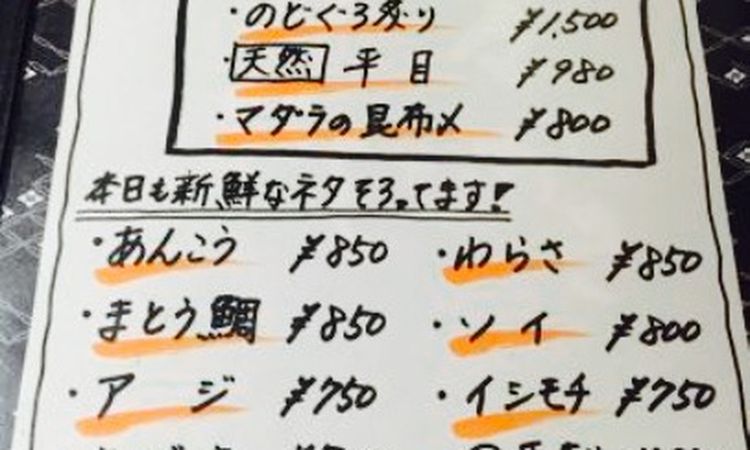 ・のどぐろ炙り ¥1,500
・天然 平目 ¥980
・マダラの昆布〆 ¥800
本日も新鮮なネタそろってます!
・あんこう ¥850 ・わらさ ¥850
・まとう鯛 ¥850 ・ソイ ¥800
・アジ ¥750 ・イシモチ ¥750